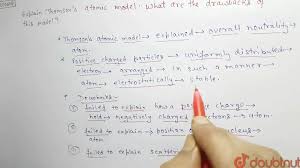 Explain Thomson's atomic model. What are the drawbacks
of this model?
* Thomson's atomic model → explained → overall neutrality
atom.
* Positive charged particles → uniformly distributed →
electron → arranged → in such a manner →
atom → electrostatically → stable.
* Drawbacks
① failed to explain how a positive charge →
hold → negatively charged electrons → atom.
② failed to explain → position of nucleus
atom.
③ failed to explain scattering